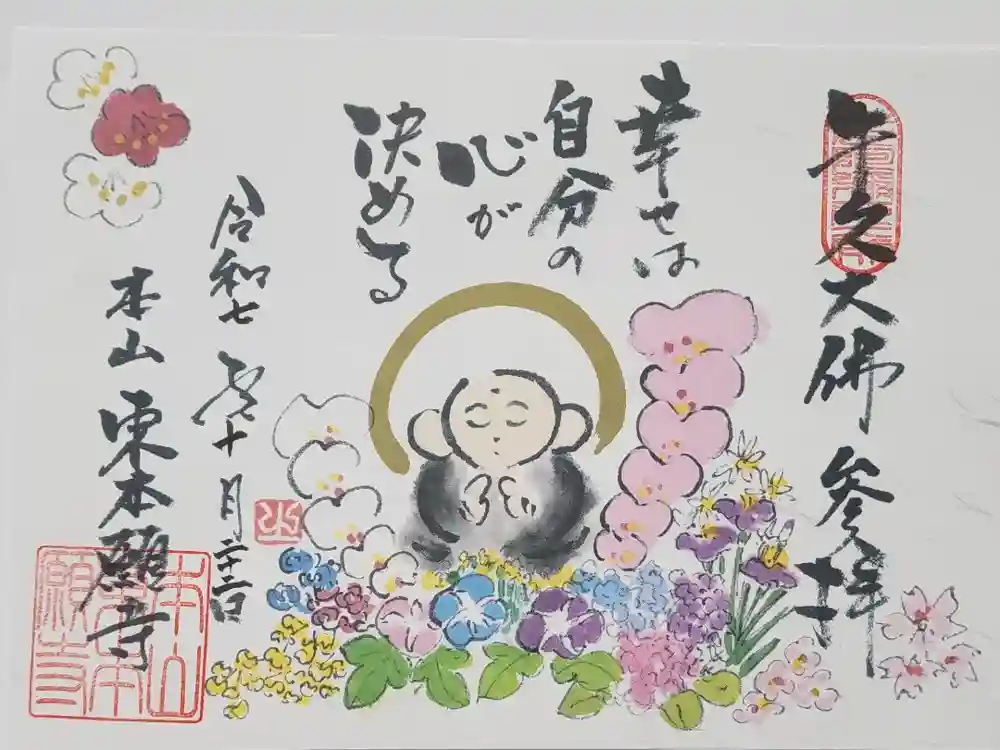 牛久大佛 参拝
幸せは
自分の
心が
決める
令和七年十月二十二日
本山 東本願寺